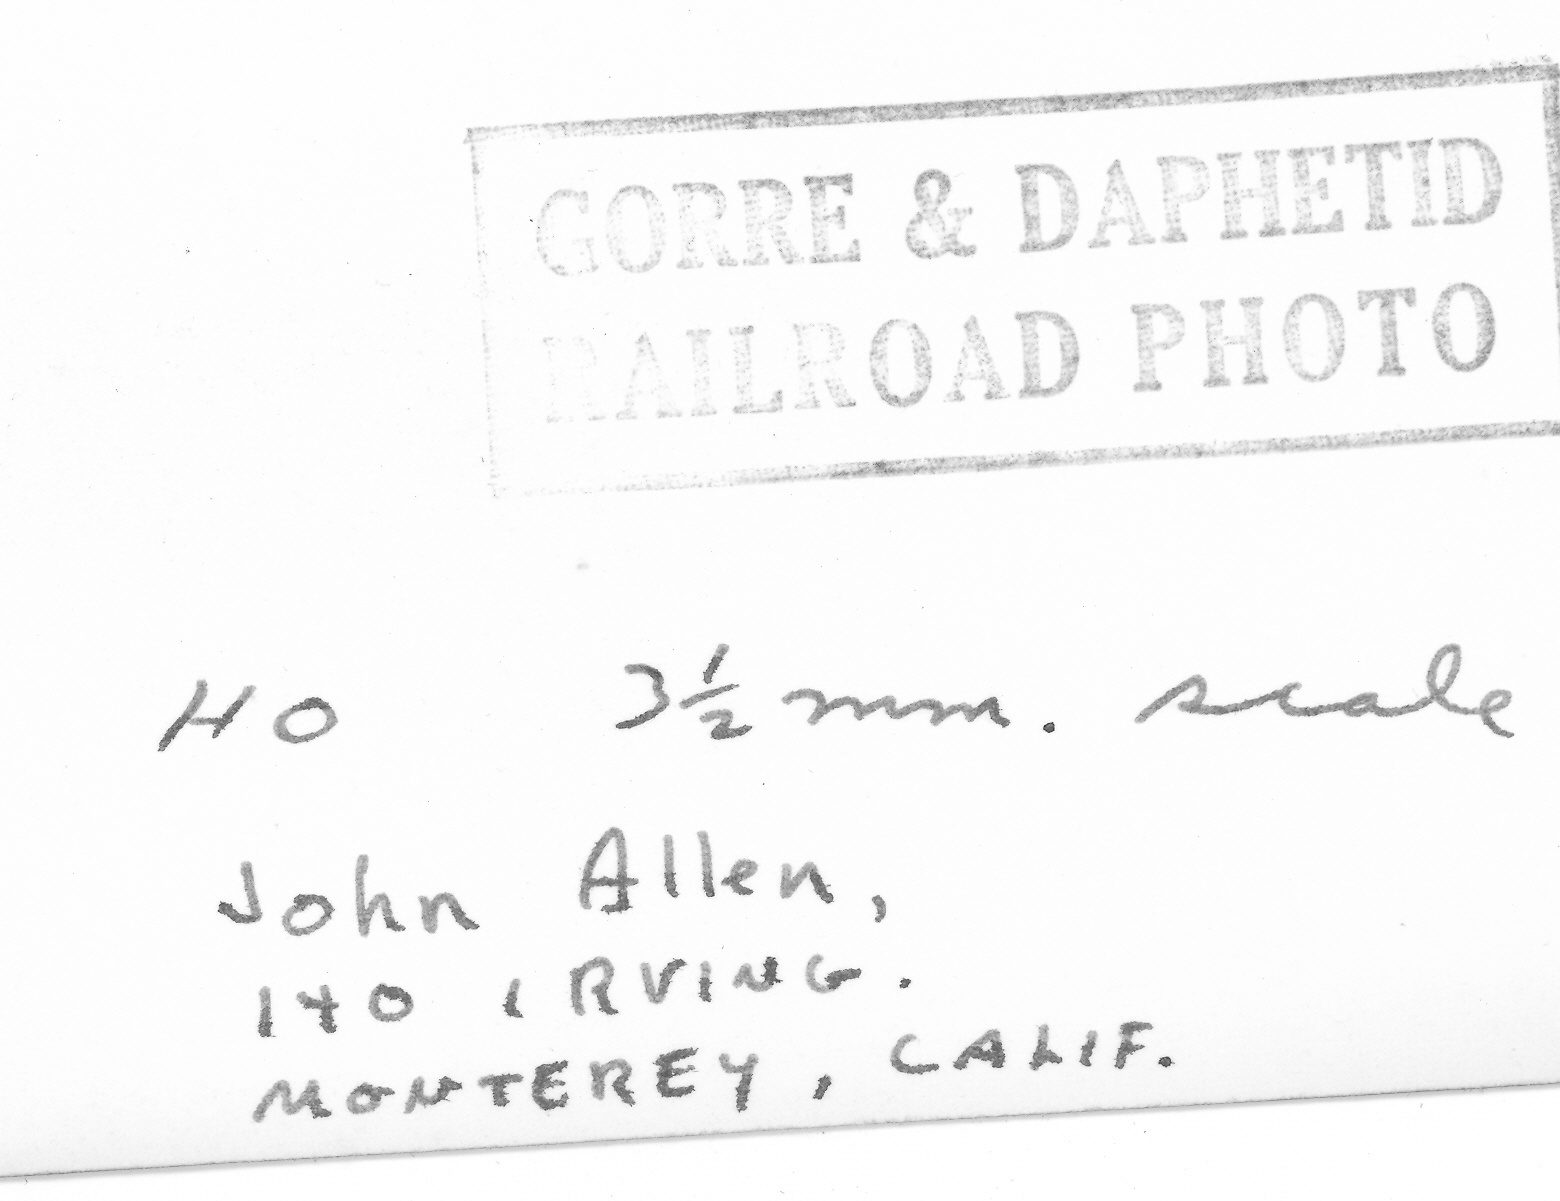 GORRE & DAPHETID
RAILROAD PHOTO
HO 3½ mm. scale
John Allen,
140 IRVING.
MONTEREY, CALIF.